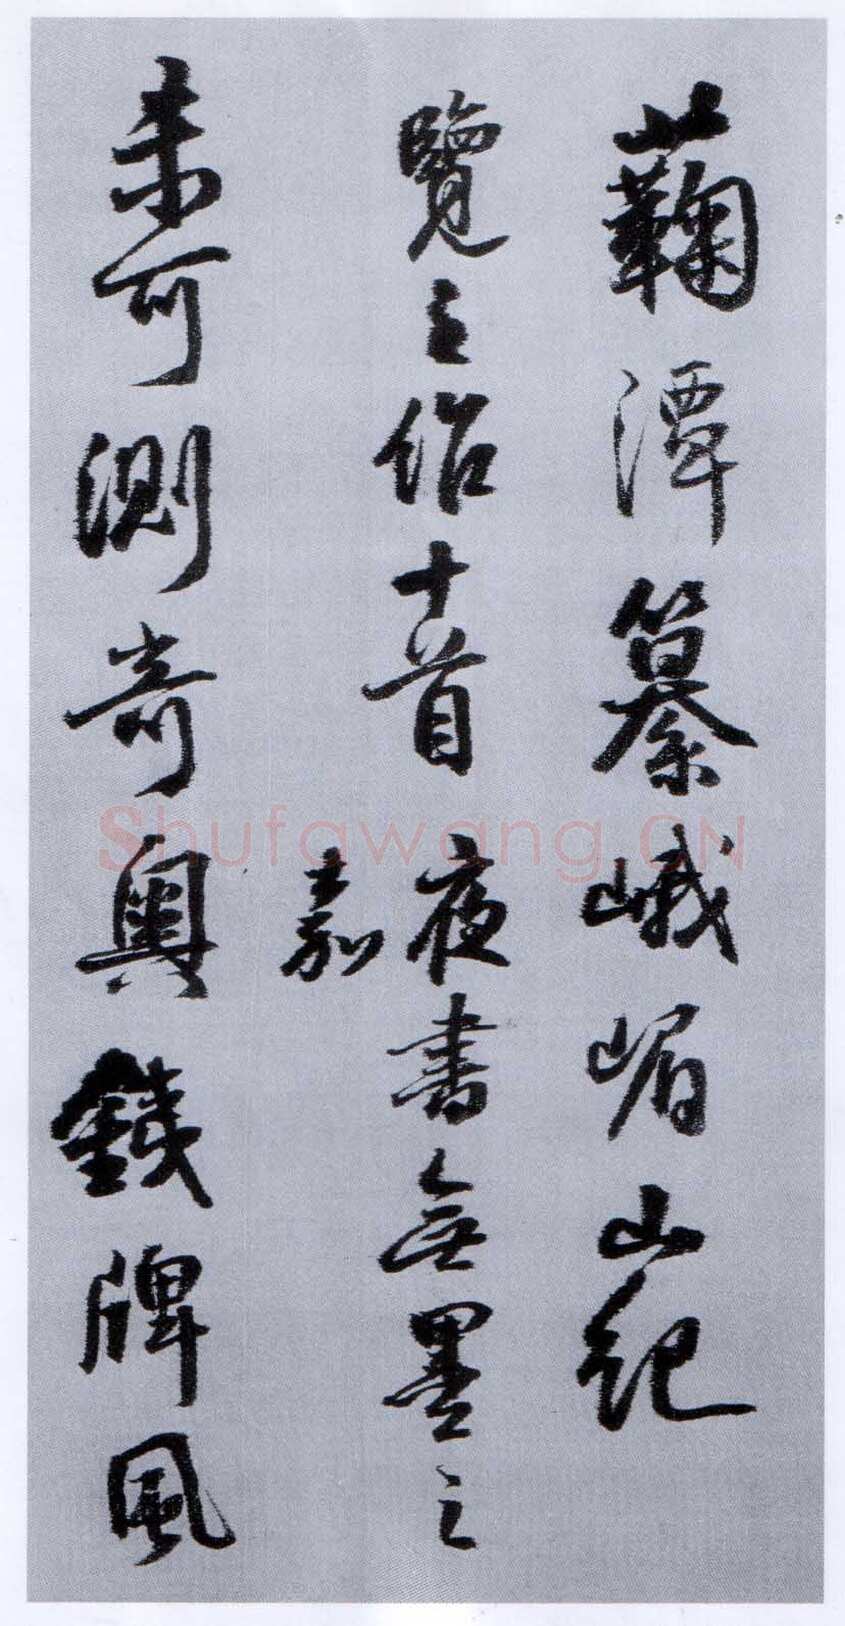 蘜潭纂峨嵋山紀
覽之十首夜書無墨之
嘉
未可測奇奧牌風
Shufawang.CN